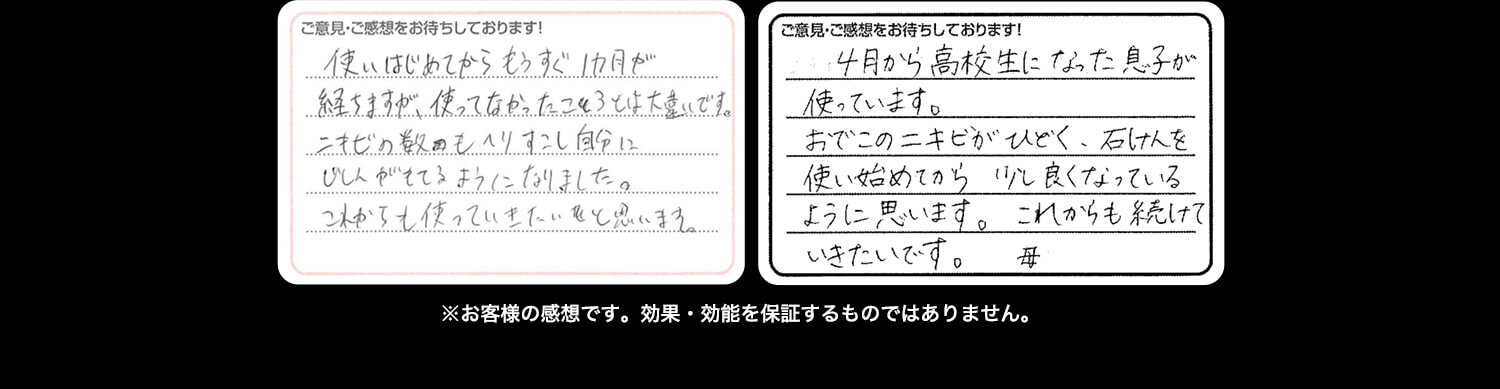 ご意見・ご感想をお待ちしております!
使いはじめてからもうすぐ1カ月が
経ちますが、使ってなかったころとは大違いです。
ニキビの数もへりすこし自分に
じしんがもてるようになりました。
これからも使っていきたいと思います。
ご意見・ご感想をお待ちしております!
4月から高校生になった息子が
使っています。
おでこのニキビがひどく、石けんを
使い始めてから 少し良くなっている
ように思います。 これからも続けて
いきたいです。 母
※お客様の感想です。効果・効能を保証するものではありません。